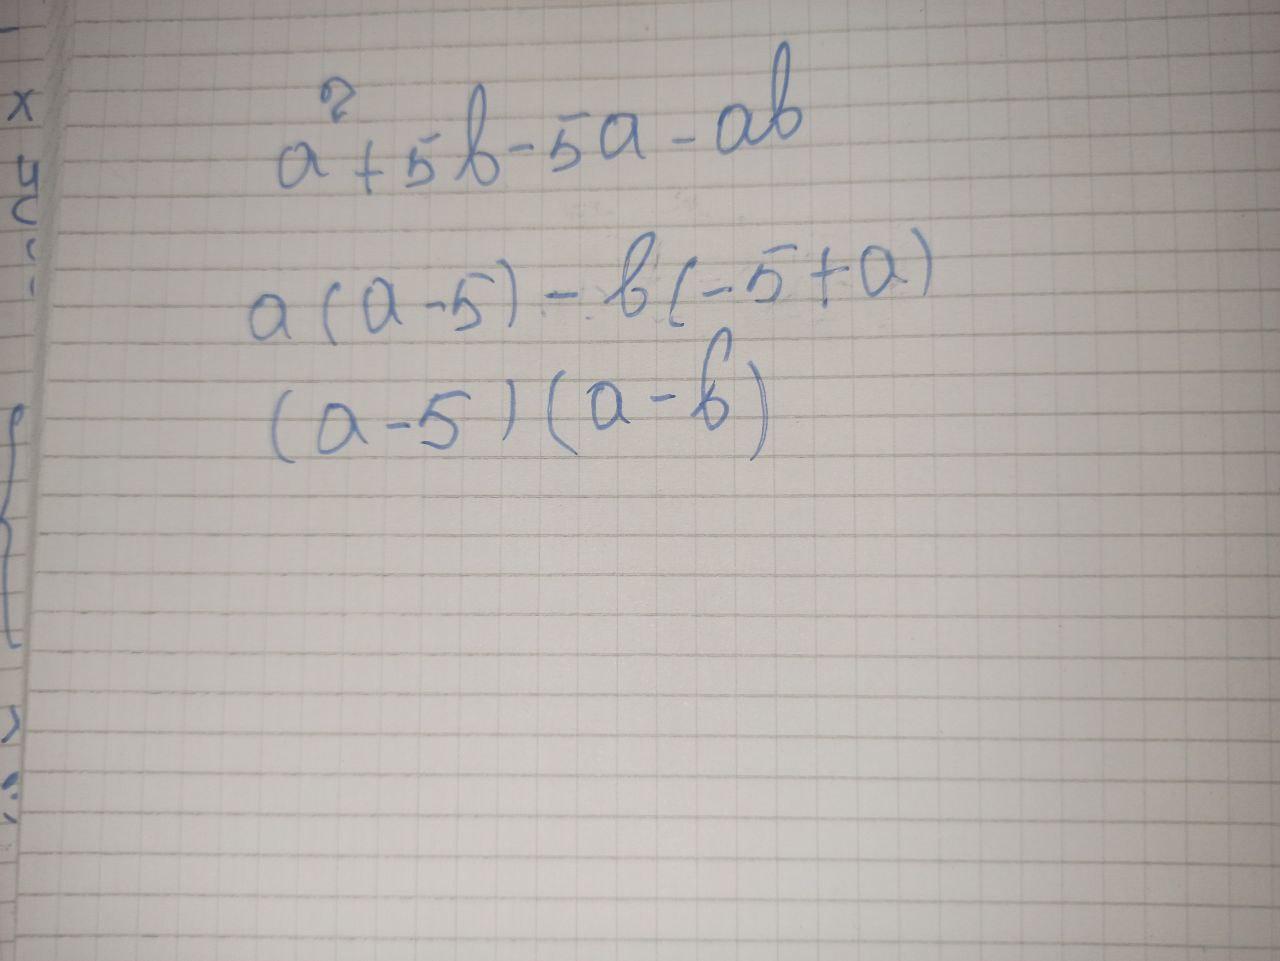 a² + 5b - 5a - ab
a(a - 5) - b(-5 + a)
(a - 5)(a - b)